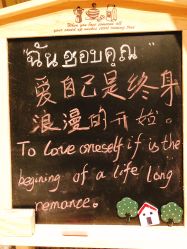 "ฉันชอบคุณ"
爱自己是终身
浪漫的开始。
To love oneself if is the
begining of a life long
romance。